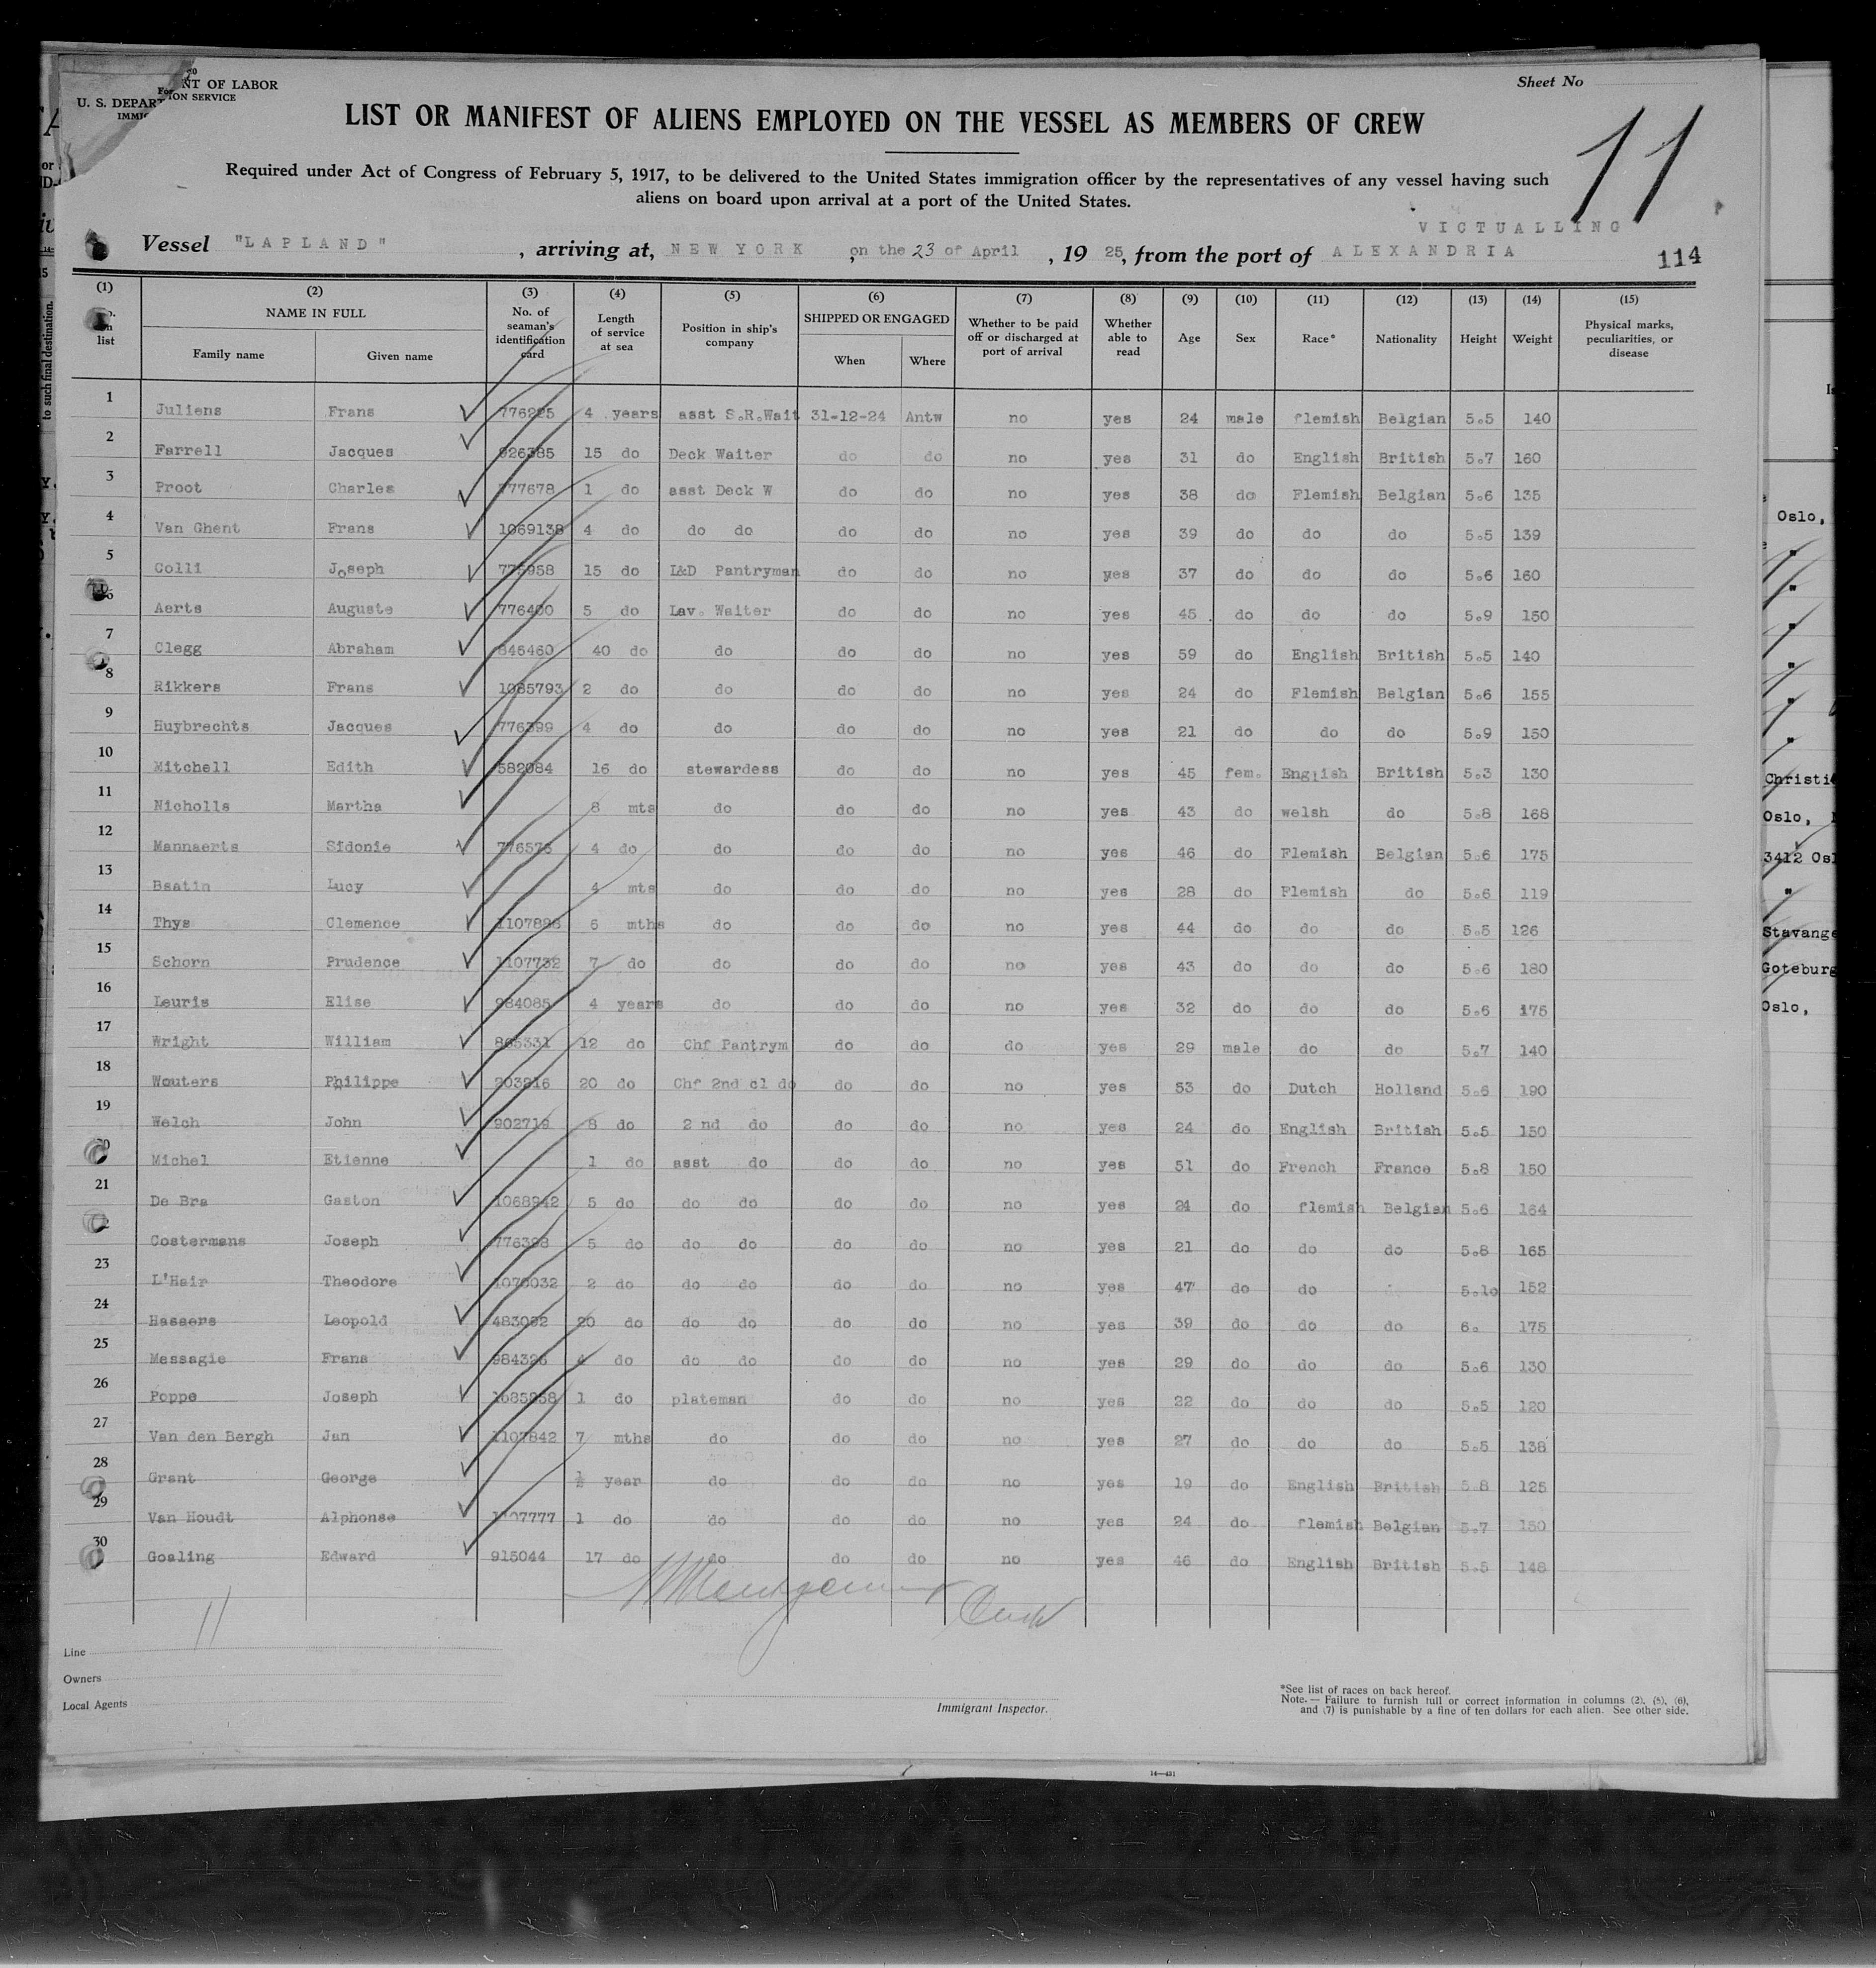 NT OF LABOR
U. S. DEPAR
ION SERVICE
IMMIG
Sheet No
11
LIST OR MANIFEST OF ALIENS EMPLOYED ON THE VESSEL AS MEMBERS OF CREW
Required under Act of Congress of February 5, 1917, to be delivered to the United States immigration officer by the representatives of any vessel having such
aliens on board upon arrival at a port of the United States.
VICTUALLING
Vessel "LAPLAND", arriving at, NEW YORK, on the 23 of April, 1925, from the port of ALEXANDRIA 114
(1) (2) (3) (4) (5) (6) (7) (8) (9) (10) (11) (12) (13) (14) (15)
list NAME IN FULL Family name Given name No. of seaman's identification card Length of service at sea Position in ship's company SHIPPED OR ENGAGED When Where Whether to be paid off or discharged at port of arrival Whether able to read Age Sex Race* Nationality Height Weight Physical marks, peculiarities, or disease
1 Juliens Frans 776225 4 years asst S.R.Wait 31-12-24 Antw no yes 24 male flemish Belgian 5.5 140
2 Farrell Jacques 926385 15 do Deck Waiter do do no yes 31 do English British 5.7 160
3 Proot Charles 777678 1 do asst Deck W do do no yes 38 do Flemish Belgian 5.6 135
4 Van Ghent Frans 1069138 4 do do do do do no yes 39 do do do 5.5 139
5 Colli Joseph 775958 15 do L&D Pantryman do do no yes 37 do do do 5.6 160
6 Aerts Auguste 776400 5 do Lav. Waiter do do no yes 45 do do do 5.9 150
7 Clegg Abraham 845460 40 do do do do no yes 59 do English British 5.5 140
8 Rikkers Frans 1085793 2 do do do do no yes 24 do Flemish Belgian 5.6 155
9 Huybrechts Jacques 776399 4 do do do do no yes 21 do do do 5.9 150
10 Mitchell Edith 582084 16 do stewardess do do no yes 45 fem. English British 5.3 130
11 Nicholls Martha 8 mts do do do no yes 43 do welsh do 5.8 168
12 Mannaerts Sidonie 776576 4 do do do do no yes 46 do Flemish Belgian 5.6 175
13 Bsatin Lucy 4 mts do do do no yes 28 do Flemish do 5.6 119
14 Thys Clemence 1107898 6 mths do do do no yes 44 do do do 5.5 126
15 Schorn Prudence 1107732 7 do do do do no yes 43 do do do 5.6 180
16 Leuris Elise 984085 4 years do do do no yes 32 do do do 5.6 175
17 Wright William 865331 12 do Chf Pantrym do do do yes 29 male do do 5.7 140
18 Wouters Philippe 203216 20 do Chf 2nd cl do do do no yes 53 do Dutch Holland 5.6 190
19 Welch John 902719 8 do 2 nd do do do no yes 24 do English British 5.5 150
20 Michel Etienne 1 do asst do do do no yes 51 do French France 5.8 150
21 De Bra Gaston 1068942 5 do do do do do no yes 24 do flemish Belgian 5.6 164
22 Costermans Joseph 776398 5 do do do do do no yes 21 do do do 5.8 165
23 L'Hair Theodore 1076032 2 do do do do do no yes 47 do do 5.10 152
24 Hasaers Leopold 483092 20 do do do do do no yes 39 do do do 6. 175
25 Messagie Frans 984326 4 do do do do do no yes 29 do do do 5.6 130
26 Poppe Joseph 1085958 1 do plateman do do no yes 22 do do do 5.5 120
27 Van den Bergh Jan 1107842 7 mths do do do no yes 27 do do do 5.5 138
28 Grant George ½ year do do do no yes 19 do English British 5.8 125
29 Van Houdt Alphonse 1107777 1 do do do do no yes 24 do flemish Belgian 5.7 150
30 Gosling Edward 915044 17 do do do do no yes 46 do English British 5.5 148
11
Line
Owners
Local Agents
Immigrant Inspector.
*See list of races on back hereof.
Note.— Failure to furnish full or correct information in columns (2), (5), (6),
and (7) is punishable by a fine of ten dollars for each alien. See other side.
14—431
to such final destination.
Oslo,
Christi
Oslo,
3412 Osl
Stavange
Goteburg
Oslo,